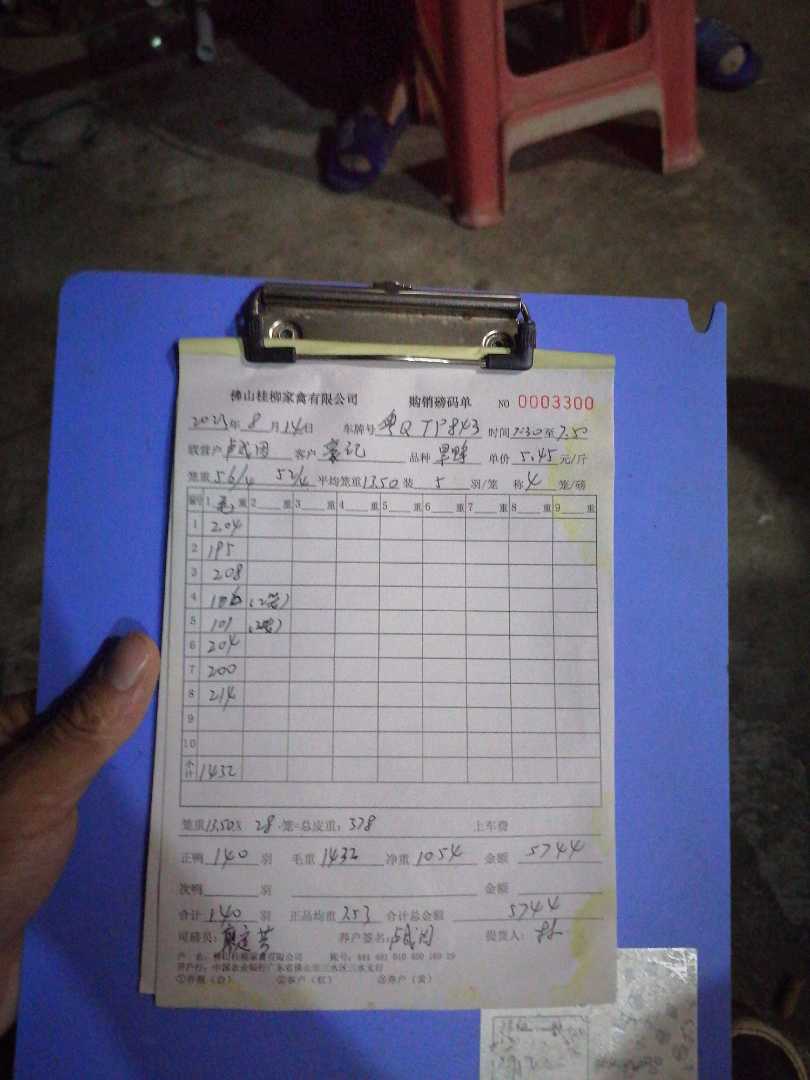 佛山桂柳家禽有限公司 购销磅码单 NO 0003300
2023年 8 月 14日 车牌号 粤Q TP843 时间 7:30 至 7:50
联营户 客户 豪记 品种 单价 5.45 元/斤
笼重 56/4 52/4 平均笼重 13.50 装 5 羽/笼 称 4 笼/磅
编号 1 毛 重 2 重 3 重 4 重 5 重 6 重 7 重 8 重 9 重
1 204
2 195
3 208
4 106 (2笼)
5 101 (2笼)
6 204
7 200
8 214
9
10
小计 1432
笼重 13.50 X 28 笼=总皮重: 378 上车费
正鸭 140 羽 毛重 1432 净重 1054 金额 5744
次鸭 羽 金额
合计 140 羽 正品均重 7.53 合计总金额 5744
司磅员: 养户签名: 提货人:
户 名: 佛山桂柳家禽有限公司 账号:
开户行: 中国农业银行广东省佛山市三水区三水支行
①存根(白) ②客户(红) ③养户(黄)